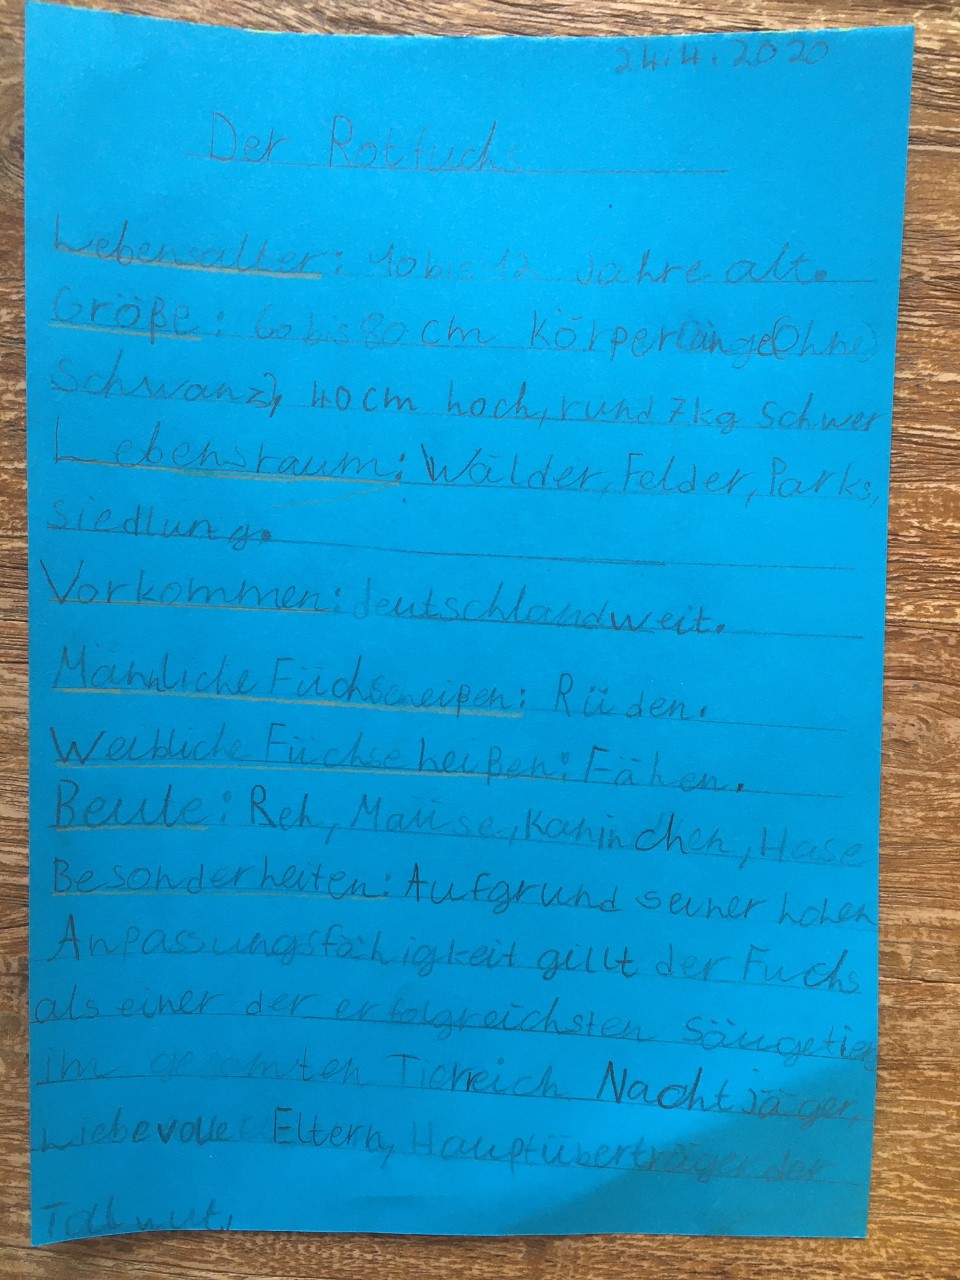 24.4.2020
Der Rotfuchs
Lebensalter: 10 bis 12 Jahre alt.
Größe: 60 bis 80 cm Körperlänge (Ohne
Schwanz), 40 cm hoch, rund 7 kg Schwer
Lebensraum: Wälder, Felder, Parks,
Siedlung.
Vorkommen: deutschlandweit.
Männliche Füchse heißen: Rüden.
Weibliche Füchse heißen: Fähen.
Beute: Reh, Mäuse, Kaninchen, Hase
Besonderheiten: Aufgrund seiner hohen
Anpassungsfähigkeit gillt der Fuchs
als einer der erfolgreichsten Säugetier
im gesamten Tierreich Nachtjäger,
Liebevolle Eltern, Hauptüberträger der
Tollwut.